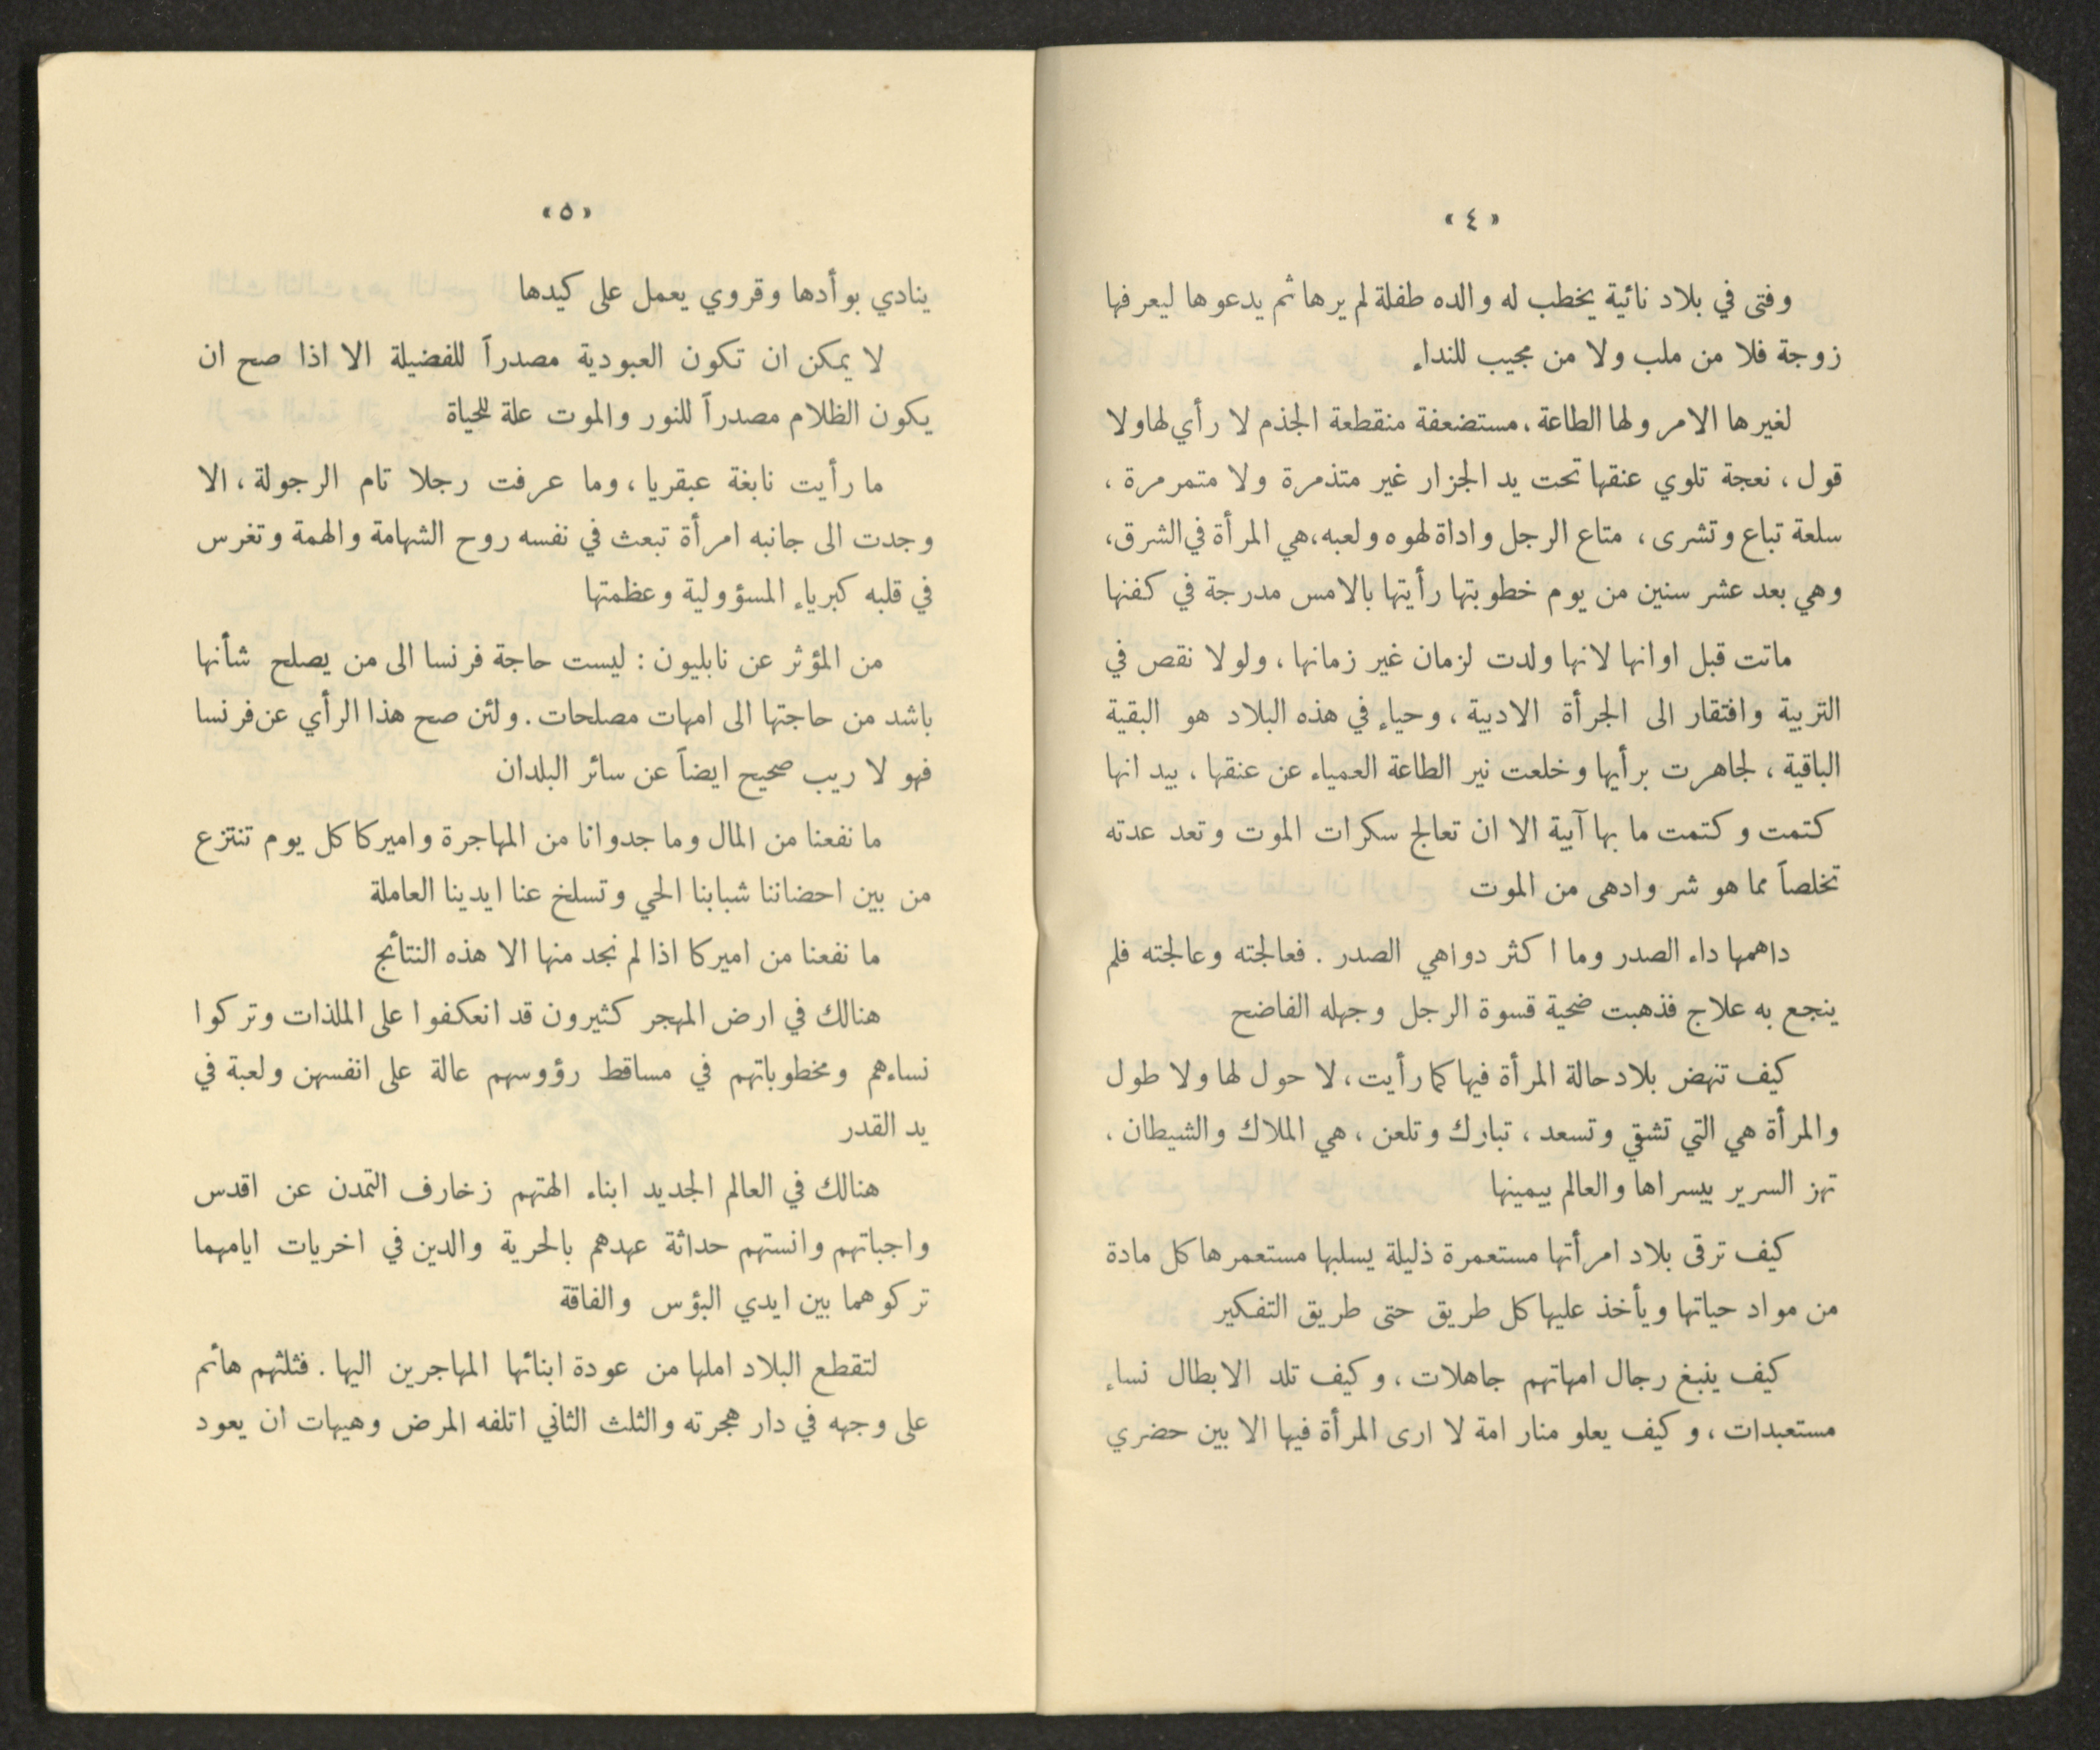 «٤»
وفتى في بلاد نائية يخطب له والده طفلة لم يرها ثم يدعوها ليعرفها
زوجة فلا من ملب ولا من مجيب للنداء
لغيرها الامر ولها الطاعة، مستضعفة منقطعة الجذم لا رأي لها ولا
قول، نعجة تلوي عنقها تحت يد الجزار غير متذمرة ولا متمرمرة،
سلعة تباع وتشرى، متاع الرجل واداة لهوه ولعبه، هي المرأة في الشرق،
وهي بعد عشر سنين من يوم خطوبتها رأيتها بالامس مدرجة في كفنها
ماتت قبل اوانها لانها ولدت لزمان غير زمانها، ولولا نقص في
التربية وافتقار الى الجرأة الادبية، وحياء في هذه البلاد هو البقية
الباقية، لجاهرت برأيها وخلعت نير الطاعة العمياء عن عنقها، بيد انها
كتمت وكتمت ما بها آبية الا ان تعالج سكرات الموت وتعد عدته
تخلصاً مما هو شر وادهى من الموت
داهمها داء الصدر وما اكثر دواهي الصدر. فعالجته وعالجته فلم
ينجع به علاج فذهبت ضحية قسوة الرجل وجهله الفاضح
كيف تنهض بلاد حالة المرأة فيها كما رأيت، لا حول لها ولا طول
والمرأة هي التي تشقي وتسعد، تبارك وتلعن، هي الملاك والشيطان.
تهز السرير بيسراها والعالم بيمينها
كيف ترقى بلاد امرأتها مستعمرة ذليلة يسلبها مستعمرها كل مادة
من مواد حياتها ويأخذ عليها كل طريق حتى طريق التفكير
كيف ينبغ رجال امهاتهم جاهلات، وكيف تلد الابطال نساء
مستعبدات، وكيف يعلو منار امة لا ارى المرأة فيها الا بين حضري
«٥»
ينادي بوأدها وقروي يعمل على كيدها
لا يمكن ان تكون العبودية مصدراً للفضيلة الا اذا صح ان
يكون الظلام مصدراً للنور والموت علة للحياة
ما رأيت نابغة عبقريا، وما عرفت رجلا تام الرجولة، الا
وجدت الى جانبه امرأة تبعث في نفسه روح الشهامة والهمة وتغرس
في قلبه كبرياء المسؤولية وعظمتها
من المؤثر عن نابليون: ليست حاجة فرنسا الى من يصلح شأنها
باشد من حاجتها الى امهات مصلحات. ولئن صح هذا الرأي عن فرنسا
فهو لا ريب صحيح ايضاً عن سائر البلدان
ما نفعنا من المال وما جدوانا من المهاجرة واميركا كل يوم تنتزع
من بين احضاننا شبابنا الحي وتسلخ عنا ايدينا العاملة
ما نفعنا من اميركا اذا لم نجد منها الا هذه النتائج
هنالك في ارض المهجر كثيرون قد انعكفوا على الملذات وتركوا
نساءهم ومخطوباتهم في مساقط رؤوسهم عالة على انفسهن ولعبة في
يد القدر
هنالك في العالم الجديد ابناء الهتهم زخارف التمدن عن اقدس
واجباتهم وانستهم حداثة عهدهم بالحرية والدين في اخريات ايامهما
تركوهما بين ايدي البؤس والفاقة
لتقطع البلاد املها من عودة ابنائها المهاجرين اليها. فثلثهم هائم
على وجهه في دار هجرته والثلث الثاني اتلفه المرض وهيهات ان يعود